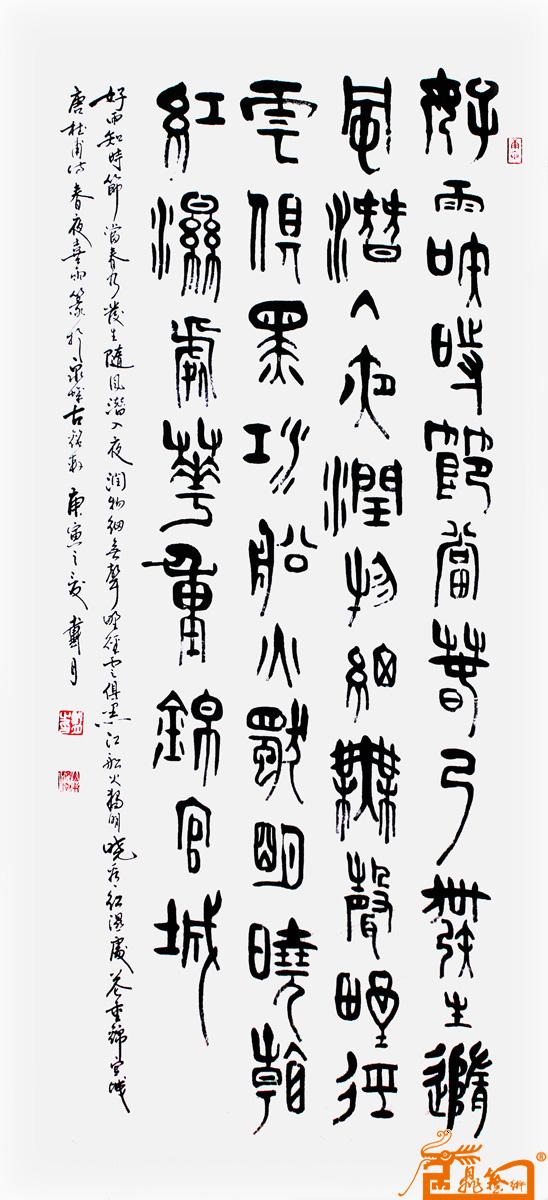 好雨知時節當春乃發生隨
風潛入夜潤物細無聲野徑
雲俱黑江船火獨明曉看
紅濕處華重錦官城
好雨知時節當春乃發生隨風潛入夜潤物細无聲野徑雲俱黑江船火獨明曉看紅濕處花重錦官城
唐杜甫诗春夜喜雨篆於泉城古 庚寅之夏戴月